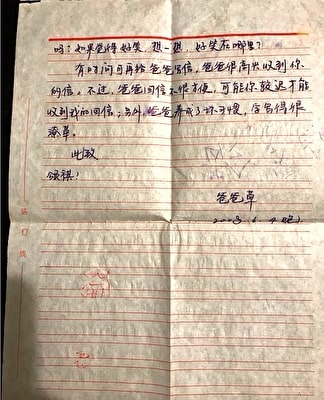 吗？如果觉得好笑，想一想，好笑在哪里？
有时间可再给爸爸写信，爸爸很高兴收到你
的信。不过，爸爸回信不很方便，可能你较迟才能
收到我的回信；另外，爸爸养成了坏习惯，字写得很
潦草。
此致
颂祺！
爸爸草
装订线